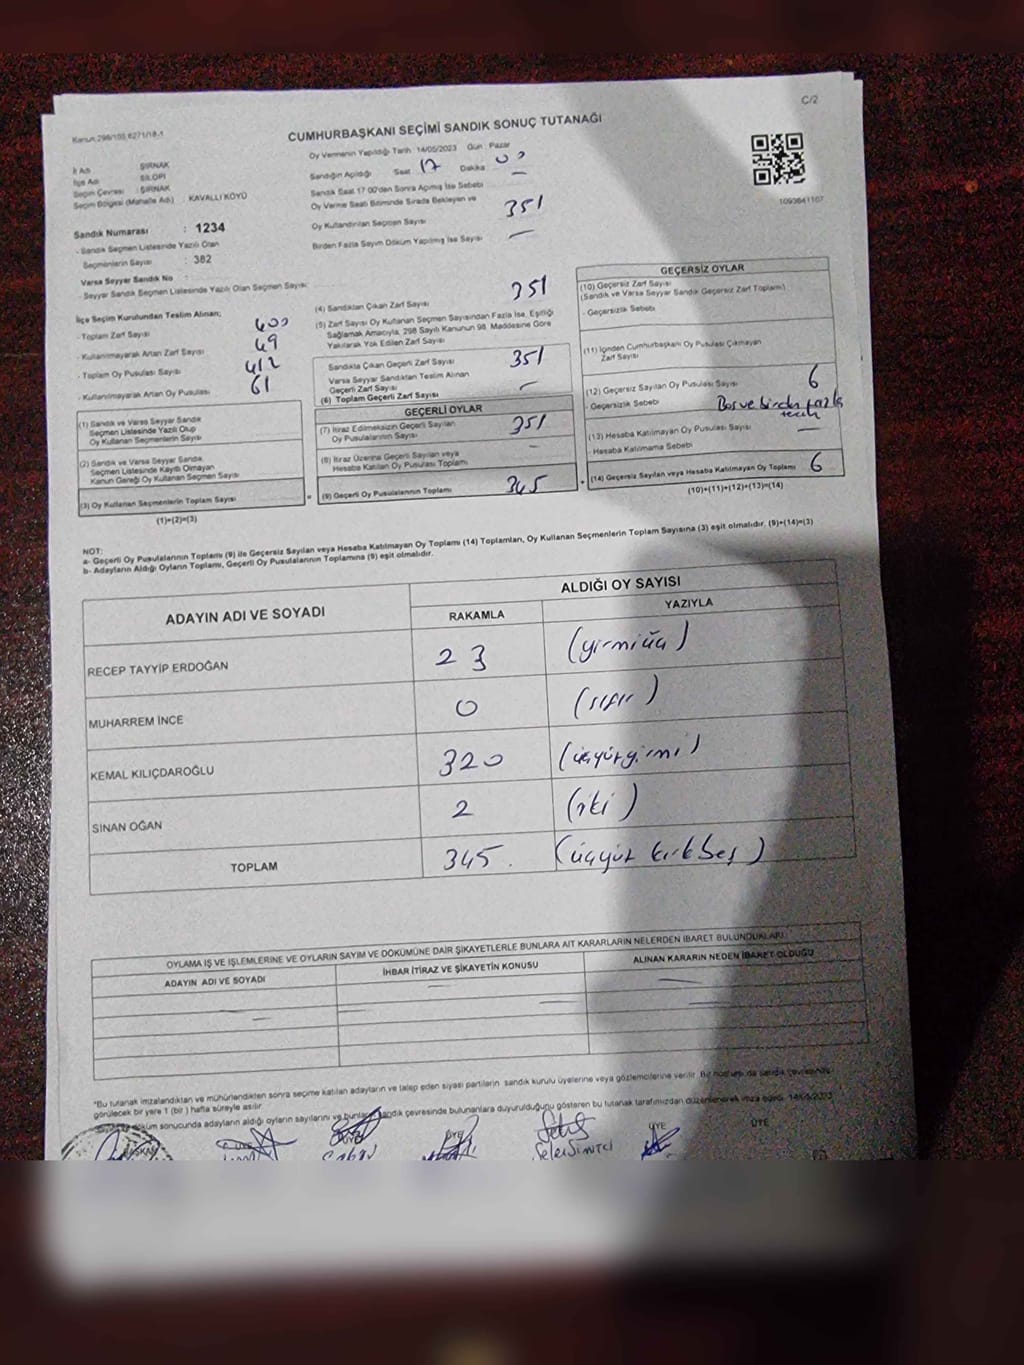 C/2
CUMHURBAŞKANI SEÇİMİ SANDIK SONUÇ TUTANAĞI
İl Adı : ŞIRNAK
İlçe Adı : SİLOPİ
Seçim Çevresi : ŞIRNAK
Seçim Bölgesi (Mahalle Adı) : KAVALLI KÖYÜ
Sandık Numarası : 1234
- Sandık Seçmen Listesinde Yazılı Olan
Seçmenlerin Sayısı : 382
Varsa Seyyar Sandık No :
- Seyyar Sandık Seçmen Listesinde Yazılı Olan Seçmen Sayısı:
Oy Vermenin Yapıldığı Tarih : 14/05/2023 Gün : Pazar
Sandığın Açıldığı Saat 17 Dakika 00
Sandık Saat 17:00'den Sonra Açmış İse Sebebi —
Oy Verme Saati Bitiminde Sırada Bekleyen ve
Oy Kullandırılan Seçmen Sayısı 351
Birden Fazla Sayım Döküm Yapılmış İse Sayısı —
1093641107
İlçe Seçim Kurulundan Teslim Alınan;
- Toplam Zarf Sayısı 400
- Kullanılmayarak Artan Zarf Sayısı 49
- Toplam Oy Pusulası Sayısı 412
- Kullanılmayarak Artan Oy Pusulası 61
(1) Sandık ve Varsa Seyyar Sandık
Seçmen Listesinde Yazılı Olup
Oy Kullanan Seçmenlerin Sayısı
(2) Sandık ve Varsa Seyyar Sandık
Seçmen Listesinde Kayıtlı Olmayan
Kanun Gereği Oy Kullanan Seçmen Sayısı
(3) Oy Kullanan Seçmenlerin Toplam Sayısı =
(1)+(2)=(3)
(4) Sandıktan Çıkan Zarf Sayısı 351
(5) Zarf Sayısı Oy Kullanan Seçmen Sayısından Fazla İse, Eşitliği
Sağlamak Amacıyla, 298 Sayılı Kanunun 98. Maddesine Göre
Yakılarak Yok Edilen Zarf Sayısı
Sandıkta Çıkan Geçerli Zarf Sayısı 351
Varsa Seyyar Sandıktan Teslim Alınan
Geçerli Zarf Sayısı —
(6) Toplam Geçerli Zarf Sayısı
GEÇERLİ OYLAR
(7) İtiraz Edilmeksizin Geçerli Sayılan
Oy Pusulalarının Sayısı 351
(8) İtiraz Üzerine Geçerli Sayılan veya
Hesaba Katılan Oy Pusulası Toplamı —
(9) Geçerli Oy Pusulalarının Toplamı 345 +
GEÇERSİZ OYLAR
(10) Geçersiz Zarf Sayısı
(Sandık ve Varsa Seyyar Sandık Geçersiz Zarf Toplamı)
- Geçersizlik Sebebi
(11) İçinden Cumhurbaşkanı Oy Pusulası Çıkmayan
Zarf Sayısı
(12) Geçersiz Sayılan Oy Pusulası Sayısı 6
- Geçersizlik Sebebi Bos ve birden fazla
tercih
(13) Hesaba Katılmayan Oy Pusulası Sayısı —
- Hesaba Katılmama Sebebi
(14) Geçersiz Sayılan veya Hesaba Katılmayan Oy Toplamı 6
(10)+(11)+(12)+(13)=(14)
NOT:
a- Geçerli Oy Pusulalarının Toplamı (9) ile Geçersiz Sayılan veya Hesaba Katılmayan Oy Toplamı (14) Toplamları, Oy Kullanan Seçmenlerin Toplam Sayısına (3) eşit olmalıdır. (9)+(14)=(3)
b- Adayların Aldığı Oyların Toplamı, Geçerli Oy Pusulalarının Toplamına (9) eşit olmalıdır.
ADAYIN ADI VE SOYADI ALDIĞI OY SAYISI
RAKAMLA YAZIYLA
RECEP TAYYİP ERDOĞAN 23 (yirmiüç)
MUHARREM İNCE 0 (sıfır)
KEMAL KILIÇDAROĞLU 320 (üçyüzyirmi)
SİNAN OĞAN 2 (iki)
TOPLAM 345. (üçyüz kırkbeş)
OYLAMA İŞ VE İŞLEMLERİNE VE OYLARIN SAYIM VE DÖKÜMÜNE DAİR ŞİKAYETLERLE BUNLARA AİT KARARLARIN NELERDEN İBARET BULUNDUKLARI
ADAYIN ADI VE SOYADI İHBAR İTİRAZ VE ŞİKAYETİN KONUSU ALINAN KARARIN NEDEN İBARET OLDUĞU
*Bu tutanak imzalandıktan ve mühürlendikten sonra seçime katılan adayların ve talep eden siyasi partilerin sandık kurulu üyelerine veya gözlemcilerine verilir. Bir nüshası da sandık çevresinde
görülecek bir yere 1 (bir) hafta süreyle asılır.
döküm sonucunda adayların aldığı oyların sayılarını ve bunların sandık çevresinde bulunanlara duyurulduğunu gösteren bu tutanak tarafımızdan düzenlenerek imza edildi. 14/05/2023
BAŞKAN ÜYE ÜYE ÜYE ÜYE ÜYE